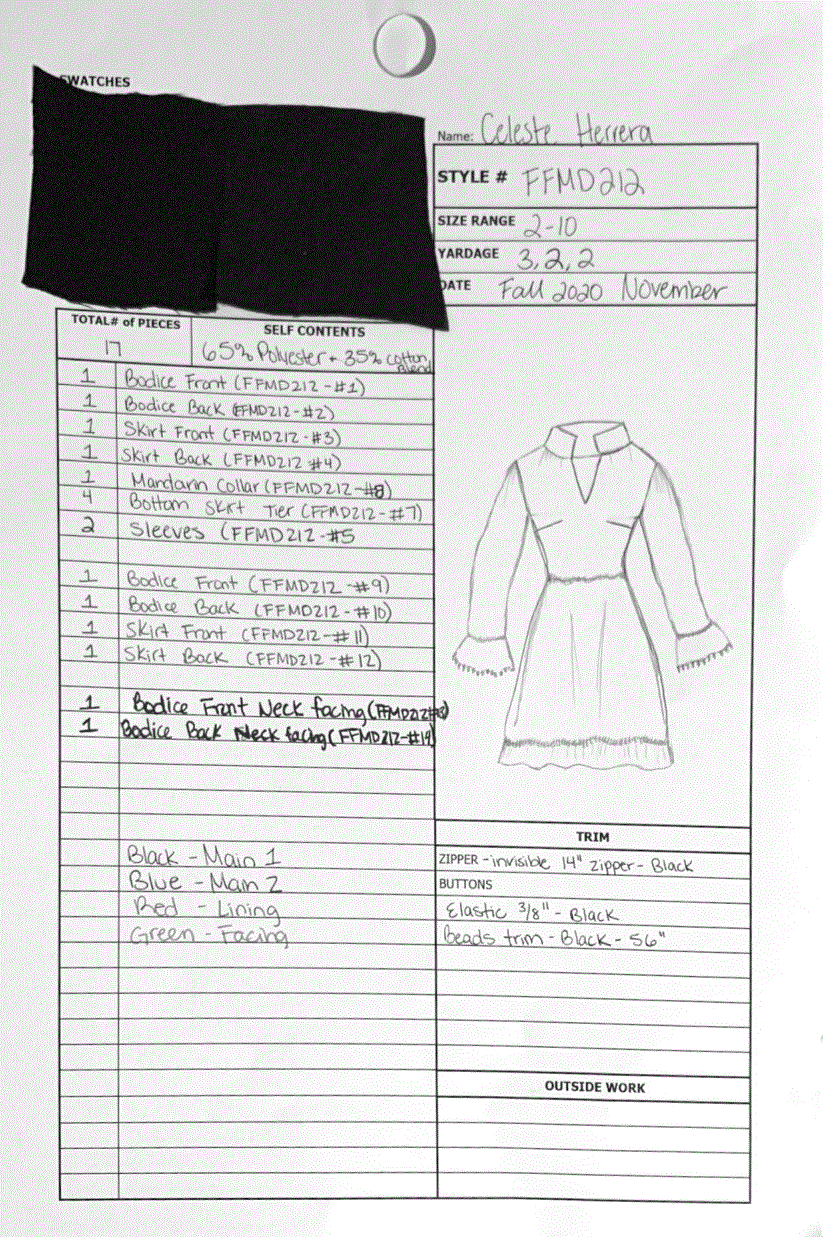 SWATCHES
Name: Celeste Herrera
STYLE # FFMD212
SIZE RANGE 2-10
YARDAGE 3, 2, 2
DATE Fall 2020 November
TOTAL# of PIECES
17
SELF CONTENTS
65% Polyester + 35% cotton blend
1 Bodice Front (FFMD212-#1)
1 Bodice Back (FFMD212-#2)
1 Skirt Front (FFMD212-#3)
1 Skirt Back (FFMD212 #4)
1 Mandarin Collar (FFMD212-#8)
4 Bottom Skirt Tier (FFMD212-#7)
2 Sleeves (FFMD212-#5
1 Bodice Front (FFMD212-#9)
1 Bodice Back (FFMD212-#10)
1 Skirt Front (FFMD212-#11)
1 Skirt Back (FFMD212-#12)
1 Bodice Front Neck facing
1 Bodice Back Neck facing (FFMD212-#14)
Black - Main 1
Blue - Main 2
Red - Lining
Green - Facing
TRIM
ZIPPER - invisible 14" zipper - Black
BUTTONS
Elastic 3/8" - Black
Beads trim - Black - 56"
OUTSIDE WORK